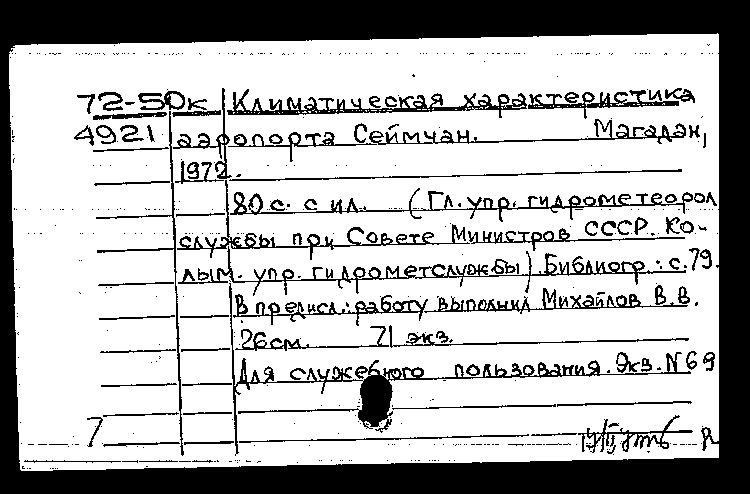 72-50к Климатическая характеристика
4921 аэропорта Сеймчан. Магадан,
1972.
80 с. с ил. (Гл. упр. гидрометеорол
службы при Совете Министров СССР. Ко-
лым. упр. гидрометслужбы) Библиогр.: с. 79.
В предисл.: работу выполнил Михайлов В.В.
26 см. 71 экз.
Для служебного пользования. Экз. N 69
7